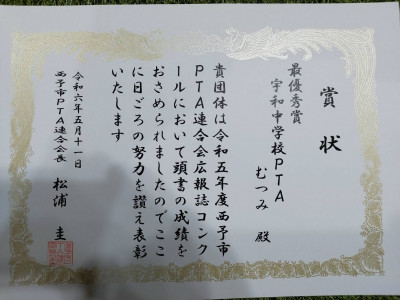 賞状
最優秀賞
宇和中学校PTA
むつみ 殿
貴団体は令和五年度西予市
PTA連合会広報誌コンク
ールにおいて頭書の成績を
おさめられましたのでここ
に日ごろの努力を讃え表彰
いたします
令和六年五月十一日
西予市PTA連合会長 松浦 圭